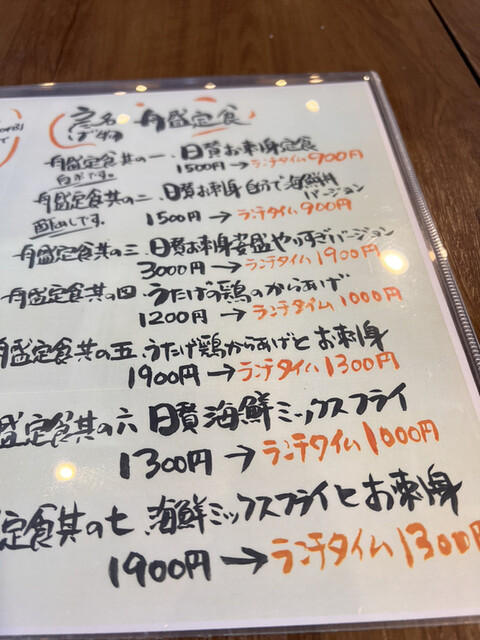 名物 舟盛定食
舟盛定食其の一、日替お刺身定食
1500円→ランチタイム900円
舟盛定食其の二、日替お刺身自分で海鮮丼バージョン
1500円→ランチタイム900円
舟盛定食其の三、日替お刺身姿盛やりすぎバージョン
3000円→ランチタイム1900円
舟盛定食其の四、うたげの鶏のからあげ
1200円→ランチタイム1000円
舟盛定食其の五、うたげ鶏からあげとお刺身
1900円→ランチタイム1300円
盛定食其の六 日替海鮮ミックスフライ
1300円→ランチタイム1000円
定食其の七、海鮮ミックスフライとお刺身
1900円→ランチタイム1300円